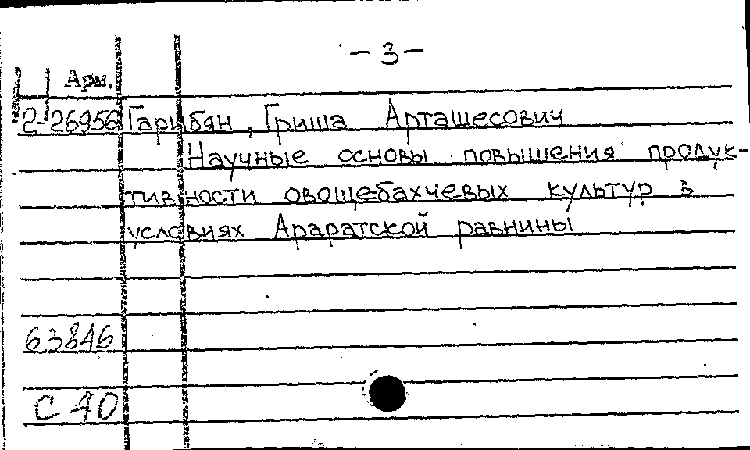 - 3 -
Арм.
2-26956 Гарибян, Гриша Арташесович
Научные основы повышения продук-
тивности овощебахчевых культур в
условиях Араратской равнины
63846
С 40